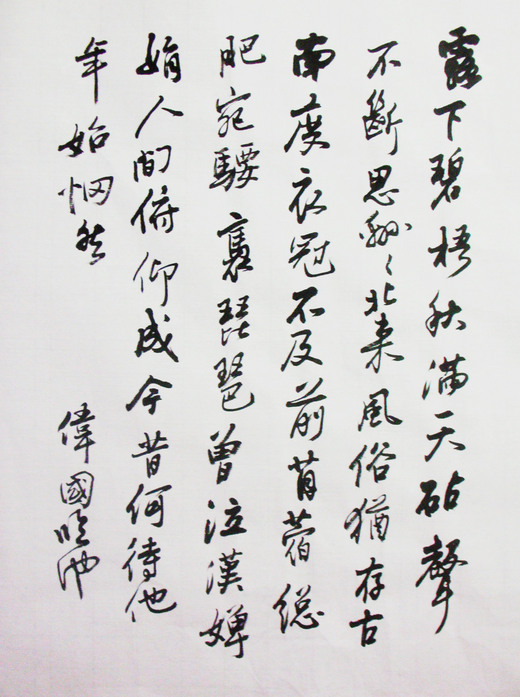 露下碧梧秋滿天砧聲
不斷思緜〻北來風俗猶存古
南度衣冠不及前苜蓿總
肥宛騕褭琵琶曾泣漢嬋
娟人間俯仰成今昔何待他
年始惘然
偉國